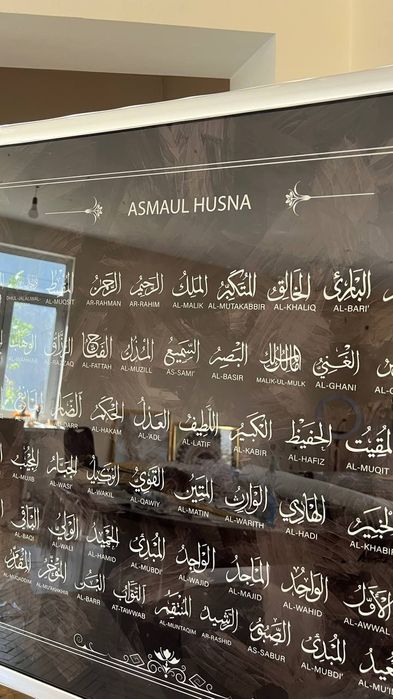 ASMAUL HUSNA
المقسط الرحمن الرحيم الملك المتكبر الخالق البارئ
DHUL-JALALWAL- AL-MUQSIT AR-RAHMAN AR-RAHIM AL-MALIK AL-MUTAKABBIR AL-KHALIQ AL-BARI'
الرزاق الفتاح المذل السميع البصير مالك الملك الغني
AR-RAZZAQ AL-FATTAH AL-MUZILL AS-SAMI' AL-BASIR MALIK-UL-MULK AL-GHANI
الضار الحكم العدل اللطيف الكبير الحفيظ المقيت
AL-HAKAM AL-'ADL AL-LATIF AL-KABIR AL-HAFIZ AL-MUQIT
المجيب الوكيل القوي المتين الوارث الهادي الخبير
AL-MUJIB AL-WASI' AL-WAKIL AL-QAWIY AL-MATIN AL-WARITH AL-HADI AL-KHABIR
الباقي الولي الحميد المبدئ الواجد الماجد الواحد الأول
AL-BAQI AL-WALI AL-HAMID AL-MUBDI' AL-WAJID AL-MAJID AL-WAHID AL-AWWAL
المقدم المؤخر البر التواب المنتقم الرشيد الصبور المبدئ
AL-MUQADDIM AL-MU'AKHKHIR AL-BARR AT-TAWWAB AL-MUNTAQIM AR-RASHID AS-SABUR AL-MUBDI'